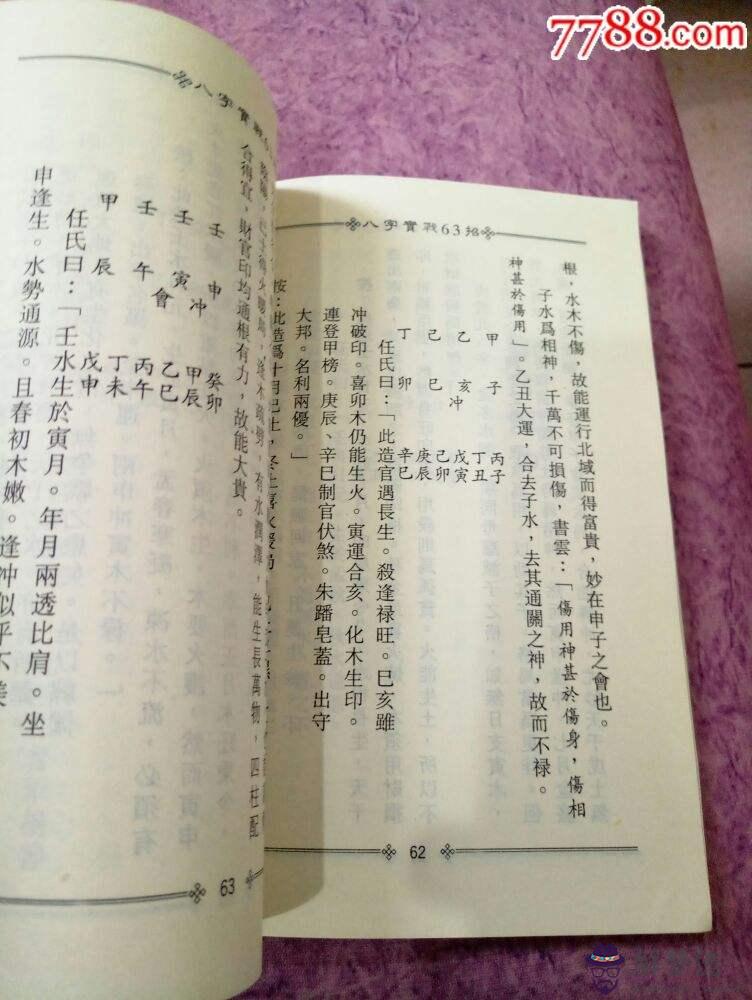 7788.com
八字實戰63招
根，水木不傷，故能運行北域而得富貴，妙在申子之會也。
子水爲相神，千萬不可損傷，書雲：「傷用神甚於傷身，傷相
神甚於傷用」。乙丑大運，合去子水，去其通關之神，故而不禄。
甲 子 丙子
乙 亥 丁丑
冲 戊寅
己 巳 己卯
丁 卯 庚辰
辛巳
任氏曰：「此造官遇長生。殺逢禄旺。巳亥雖
冲破印。喜卯木仍能生火。寅運合亥。化木生印。
連登甲榜。庚辰、辛巳制官伏煞。朱蹯皂蓋。出守
大邦。名利兩優。」
62
八字實戰6
按：此造爲十月己土，
有水潤澤，能生長萬物，四柱配
合得宜，財官印均通根有力，故能大貴。
壬 申 癸卯
冲 甲辰
壬 寅 乙巳
會 丙午
壬 午 丁未
甲 辰 戊申
任氏曰：「壬水生於寅月。年月兩透比肩。坐
申逢生。水勢通源。且春初木嫩。逢冲似乎不美
63